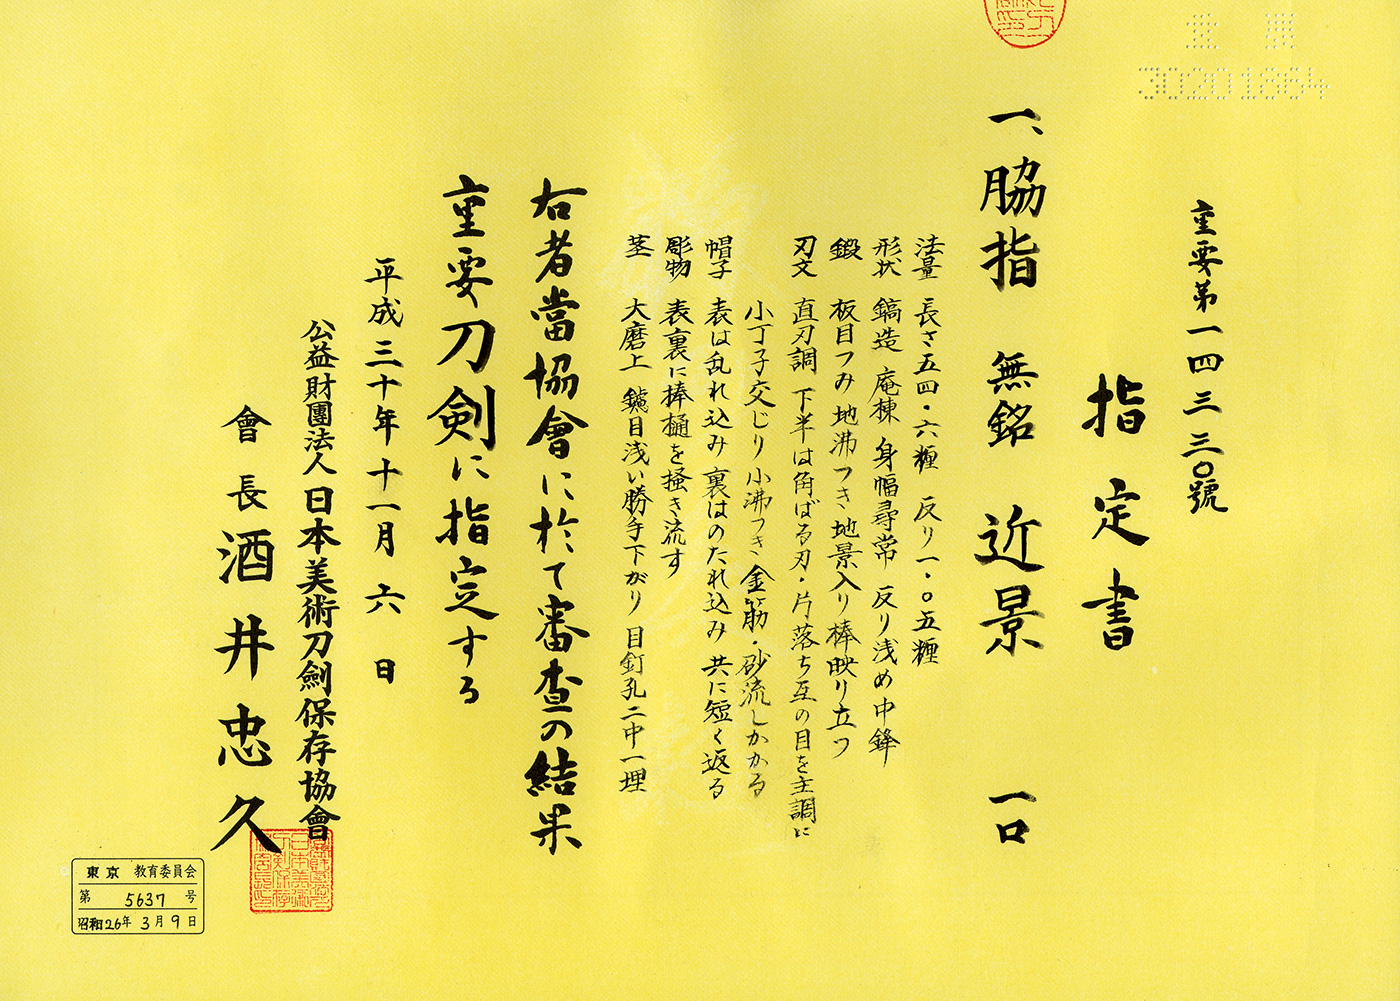 重要
30201664
重要第一四三三〇號
指定書
一、脇指 無銘 近景 一口
法量 長さ五四・六糎 反り一・〇五糎
形状 鎬造 庵棟 身幅尋常 反り浅め中鋒
鍛 板目つみ 地沸つき 地景入り 棒映り立つ
刃文 直刃調 下半は角ばる刃・片落ち互の目を主調に
小丁子交じり 小沸つき 金筋・砂流しかかる
帽子 表は乱れ込み 裏はのたれ込み 共に短く返る
彫物 表裏に棒樋を掻き流す
茎 大磨上 鑢目浅い勝手下がり 目釘孔二中一埋
右者當協會に於て審査の結果
重要刀剣に指定する
平成三十年十一月六日
公益財團法人 日本美術刀劍保存協會
會長 酒井忠久
東京 教育委員会
第 5637 号
昭和26年3月9日